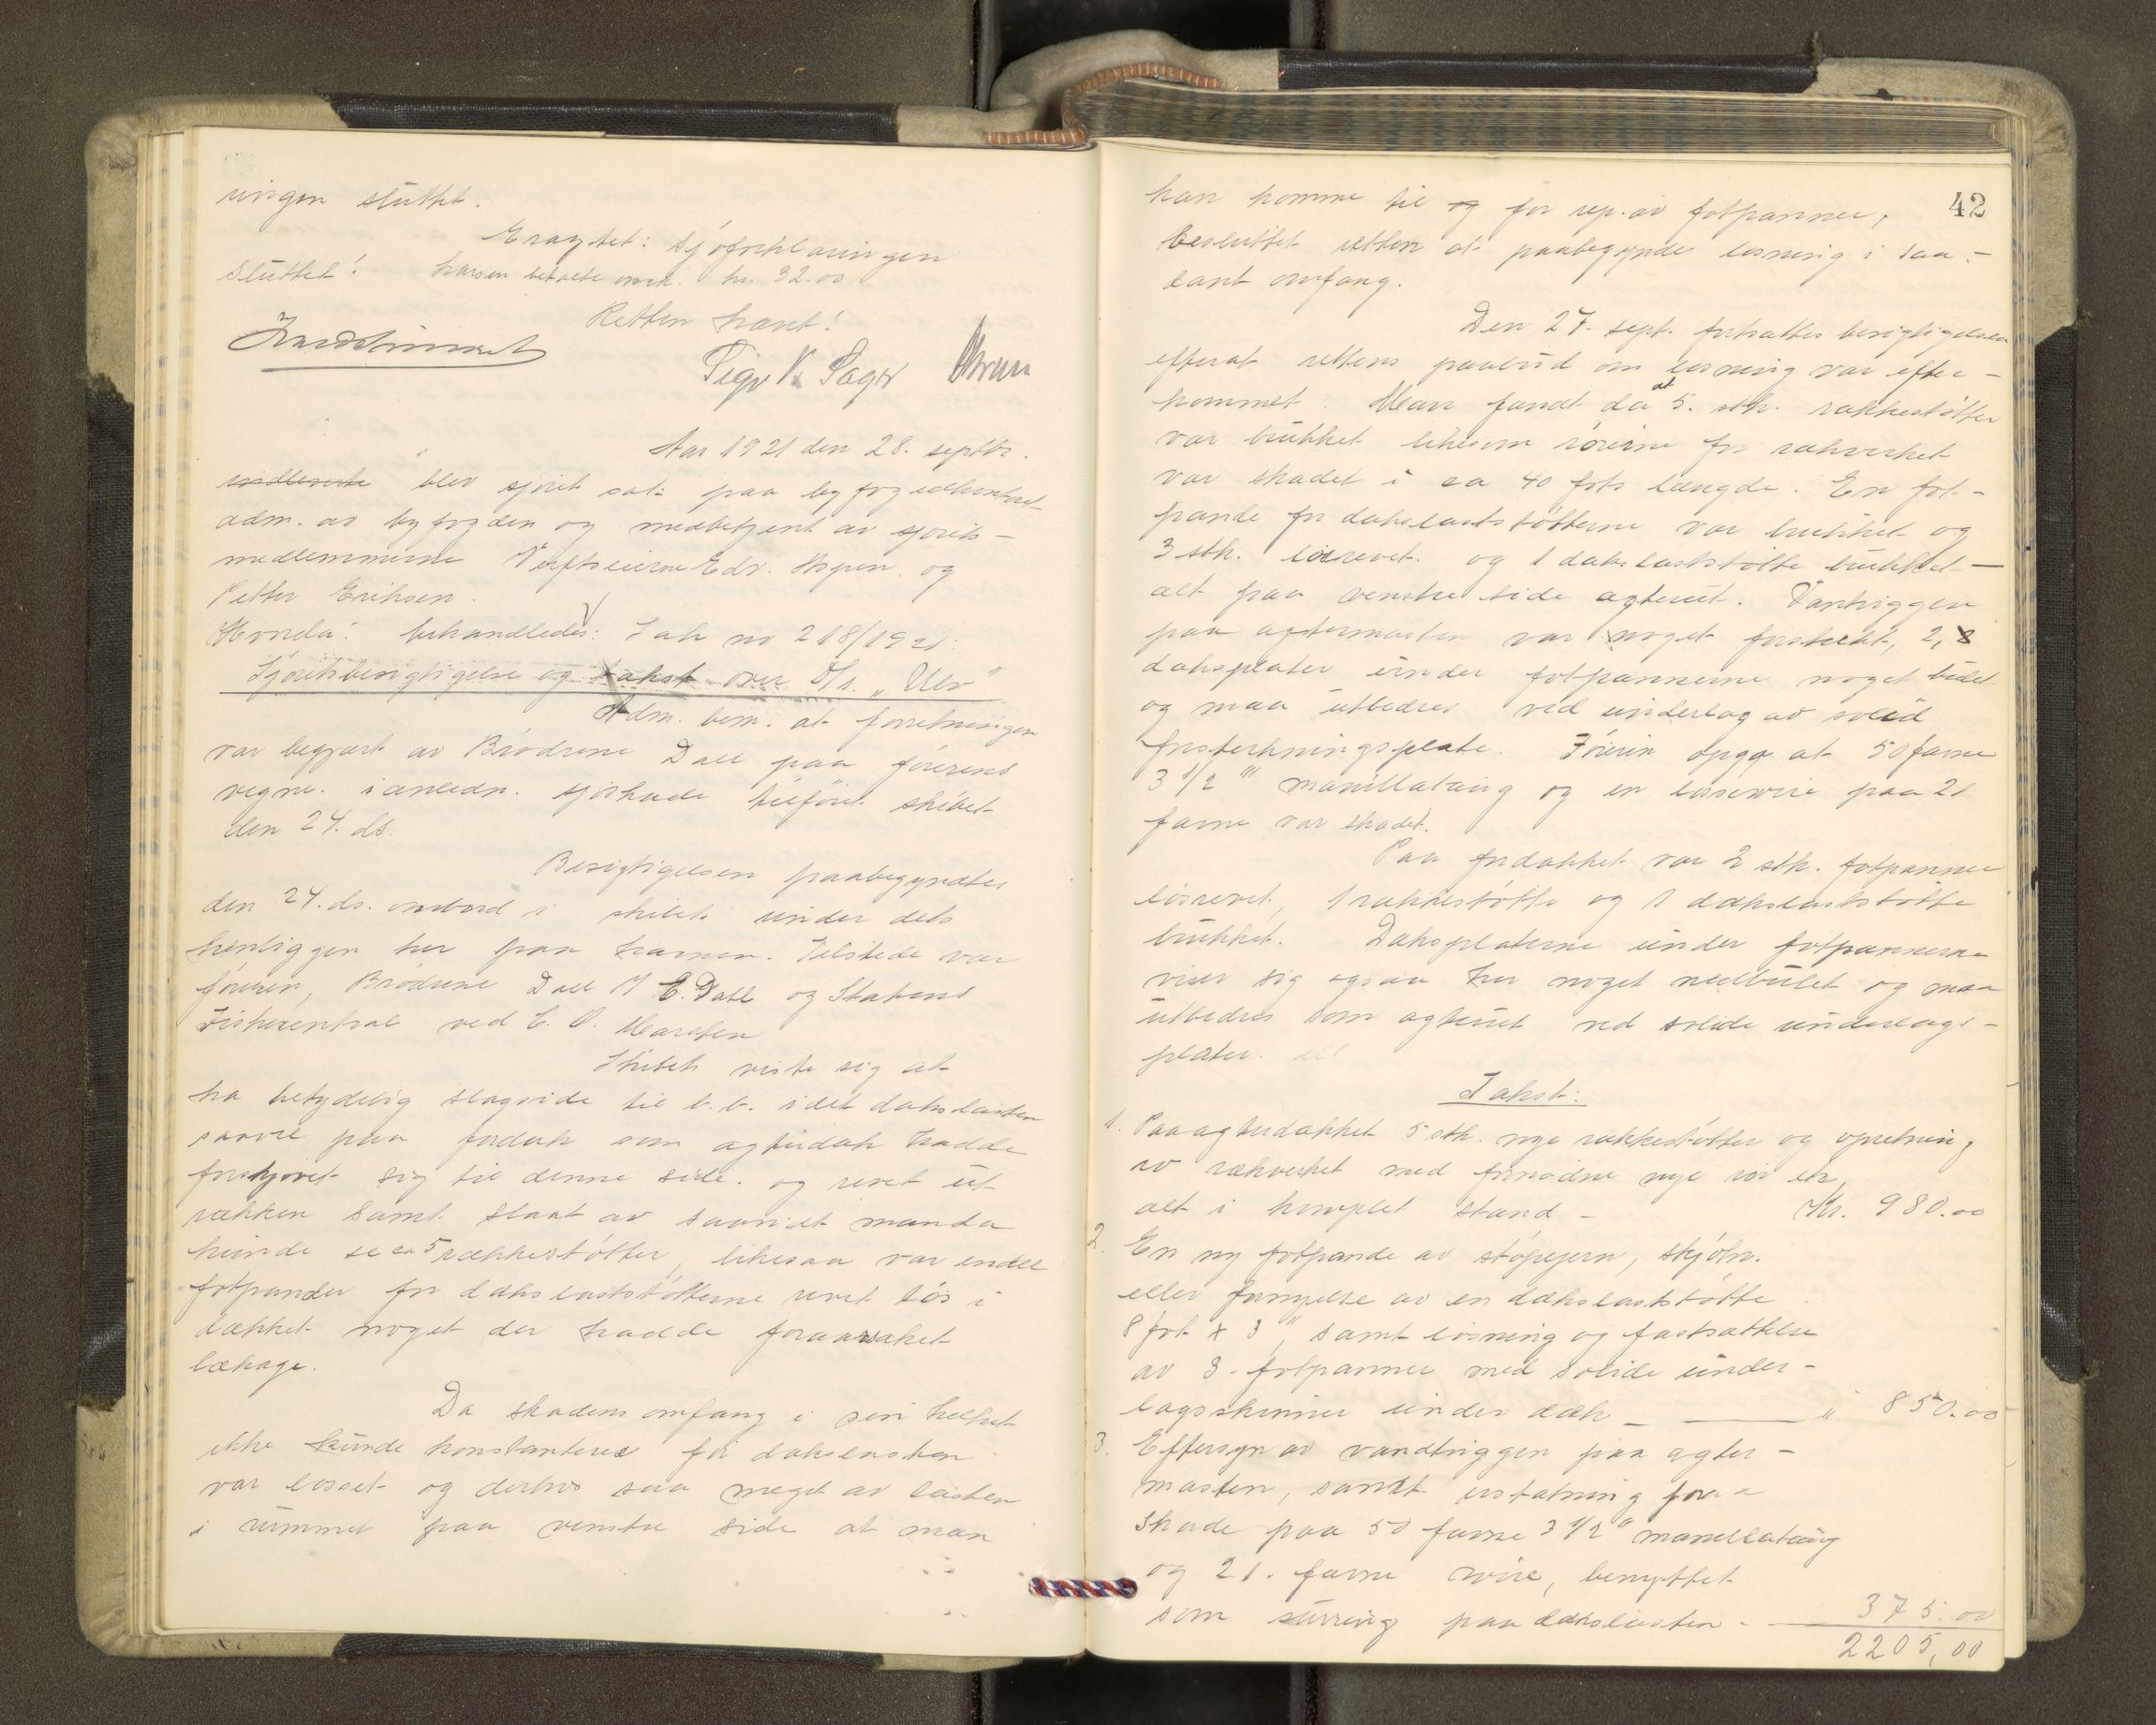 ningen sluttet.
Eragtet: Sjøforklaringen
sluttet! betalte kr. 32.00
Retten hævet!
Aar 1921 den 28. septbr.
blev sjøret sat paa byfogedkontoret
adm. av byfogden og medbetjent av sjørets-
medlemmerne Verftseierne Edv. Aspen og
Petter Eriksen.
Hvorda: behandledes: Sak no 218/1921:
Sjøretsbesigtigelse og takst over D/s. „Ulv"
Adm. bem. at forretningen
var begjært av Brødrene Dall paa førerens
vegne i anledn. sjøskade tilføiet skibet
den 24. ds.
Besigtigelsen paabegyndtes
den 24. ds. ombord i skibet under dets
henliggen her paa havnen. Tilstede var
føreren, Brødrene Dall v/ E. Dall og Statens
Fiskecentral ved C. O. Marsten
Skibet viste sig at
ha betydelig slagside til b.b. idet dækslasten
saavel paa fordæk som agterdæk hadde
forskjøvet sig til denne side og revet ut
rækken samt slaat av saavidt man da
kunde se ca 5 rækkestøtter, likesaa var endel
fotpander for dækslaststøtterne revet løs i
dækket noget der hadde foraarsaket
lækage.
Da skadens omfang i sin helhet
ikke kunde konstanteres før dækslasten
var losset og derhos saa meget av lasten
i rummet paa venstre side at man
42
kan komme til og for rep. av fotpanner,
besluttet retten at paabegynde losning i saa-
dant omfang.
Den 27. sept. fortsattes besigtigelsen
efterat rettens paabud om losning var efter-
kommet. Man fandt da at 5. stk. rækkestøtter
var brukket likesom rørene for rækverket
var skadet i ca 40 fots længde. En fot-
pande for dækslaststøtterne var brukket og
3 stk. løsrevet og 1 dækslaststøtte brukket
alt paa venstre side agterut. Vantriggen
paa agtermasten var noget forstrukt, 2
dæksplater under fotpannerne noget bulet
og maa utbedres ved underlag av solid
forsterkningsplate. Føreren opgav at 50 favne
3 1/2 " manillataug og en lossewire paa 21
favne var skadet.
Paa fordækket var 2 stk. fotpanner
løsrevet, 1 rækkestøtte og 1 dækslaststøtte
brukket. Dæksplaterne under fotpannerne
viser sig ogsaa her noget nedbulet og maa
utbedres som agterut ved solide underlags-
plater.
Takst:
1. Paa agterdækket 5 stk. nye rækkestøtter og opretning
av rækverket med fornødne nye rør etc,
alt i komplet stand - Kr. 980.00
2. En ny fotpande av støpejern, skjøtn.
eller fornyelse av en dækslaststøtte
8 fot x 3", samt løsning og fastsættelse
av 3 fotpanner med solide under-
lagsskinner under dæk - " 850.00
3. Eftersyn av vandtriggen paa agter-
masten, samt erstatning for
skade paa 50 favne 3 1/2" manillataug
og 21. favne wire, benyttet
som surring paa dækslasten - 375.00
2205,00